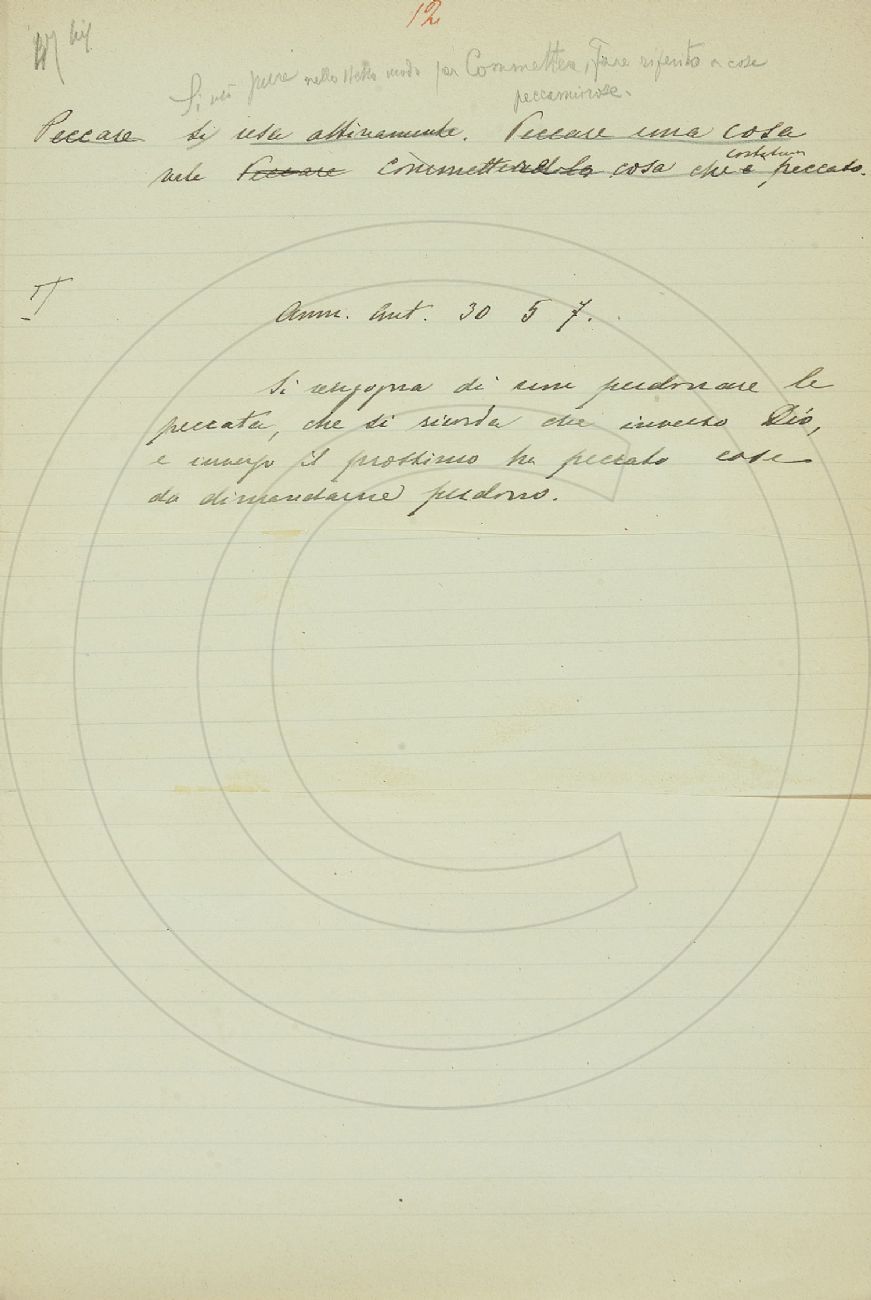 12
Si usò pure nello stesso modo per Commettere, Fare riferito a cose
peccaminose.
Peccare si usa attivamente. Peccare una cosa
vale Peccare Commettendola cosa che è peccato.
Amm. Ant. 30 5 7.
Si vergogna di non perdonare le
peccata, che si ricorda che inverso Dio,
e inverso il prossimo ha peccato cose
da dimandarne perdono.